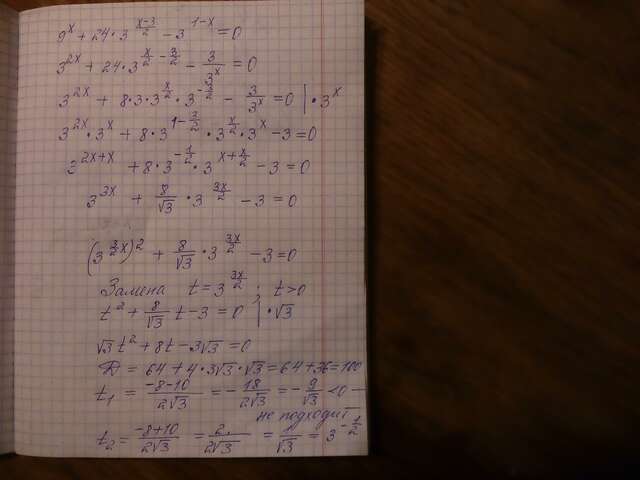 9^x + 24·3^((x-3)/2) - 3^(1-x) = 0
3^(2x) + 24·3^(x/2 - 3/2) - 3/3^x = 0
3^(2x) + 8·3·3^(x/2)·3^(-3/2) - 3/3^x = 0 | ·3^x
3^(2x)·3^x + 8·3^(1-3/2)·3^(x/2)·3^x - 3 = 0
3^(2x+x) + 8·3^(-1/2)·3^(x+x/2) - 3 = 0
3^(3x) + 8/√3 ·3^(3x/2) - 3 = 0
(3^(3/2 x))^2 + 8/√3 ·3^(3x/2) - 3 = 0
Замена t = 3^(3x/2); t>0
t^2 + 8/√3 t - 3 = 0 | ·√3
√3 t^2 + 8t - 3√3 = 0
D = 64 + 4·3√3·√3 = 64 + 36 = 100
t₁ = (-8-10)/(2√3) = -18/(2√3) = -9/√3 < 0 —
не подходит
t₂ = (-8+10)/(2√3) = 2/(2√3) = 1/√3 = 3^(-1/2)